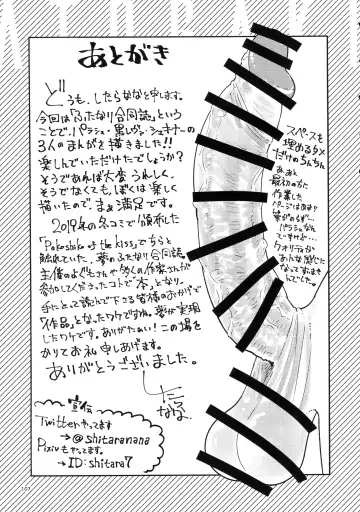 あとがき
どうも、したらななと申します。
今回は「ふたなり合同誌」という
ことで、パラシェ・黒しが・シュナーの
3人のまんがを描きました!!
楽しんでいただけたでしょうか?
そうであれば大変うれしく、
そうでなくても、ぼくは楽しく
描いたので、まぁ満足です。
2019年の冬コミで頒布した
「Pokoshiko of the kiss」でちらと
触れていた、夢のふたなり合同誌。
主催のよし生さんや多くの作家さんが
参加してくださったコトで「本」となり、
手にとって読んで下さる皆様のおかげで
「作品」となったワケですね。夢が実現
したワケです。ありがたぁい!この場を
かりてお礼申しあげます。
ありがとうございました。
したらなな
スペースを
埋めるタメ
だけのちんちん
ああ
最初の方に
作業した
ページはあ!!
クオリティが
あんな感じに
なってすみませ
んでした。
宣伝
Twitterやってます
→@shitaranana
Pixivもやってます。
→ID:shitara7
107